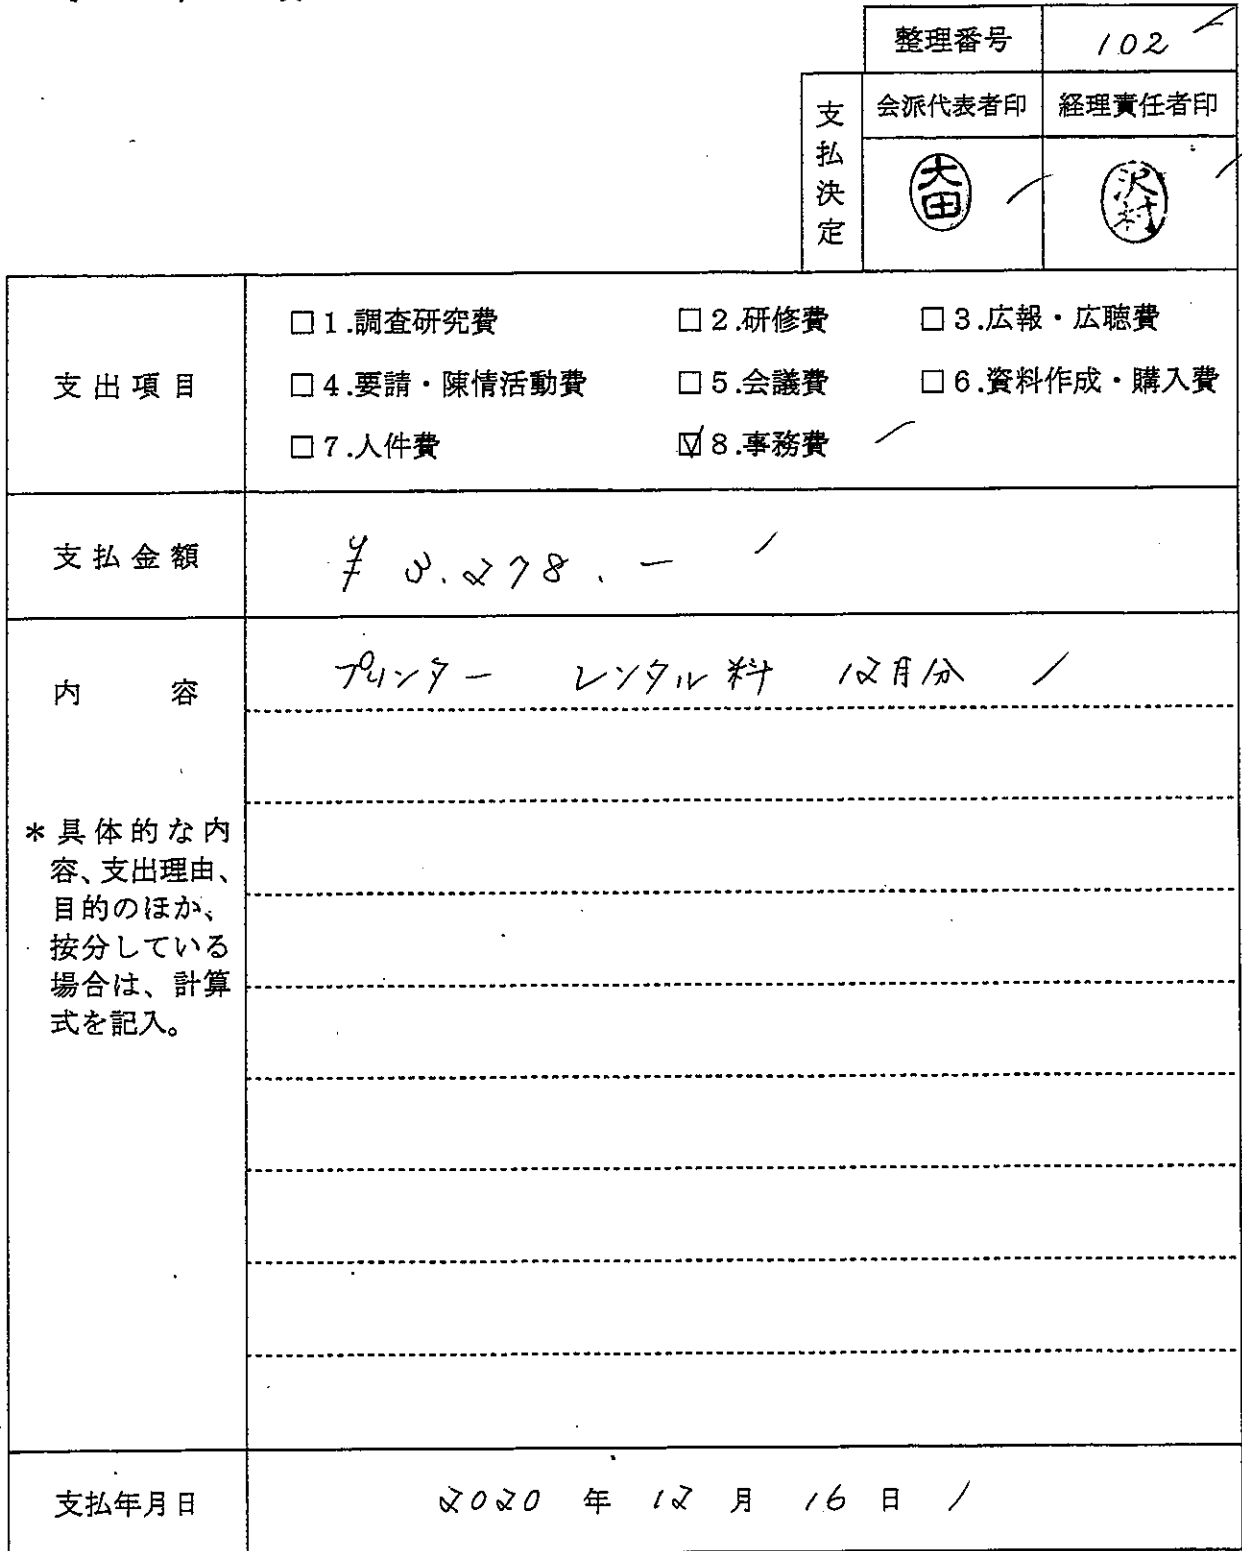 整理番号 102
支払決定 会派代表者印 経理責任者印
大田 沢村
支出項目
□1.調査研究費 □2.研修費 □3.広報・広聴費
□4.要請・陳情活動費 □5.会議費 □6.資料作成・購入費
□7.人件費 ☑8.事務費
支払金額 ¥3.278.-
内容 プリンター レンタル料 12月分
*具体的な内
容、支出理由、
目的のほか、
按分している
場合は、計算
式を記入。
支払年月日 2020 年 12 月 16 日